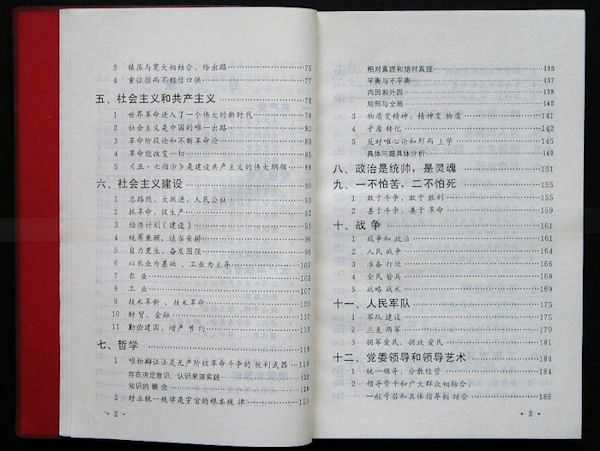 3 镇压与宽大相结合，给出路 75
4 重证据而不轻信口供 77
五、社会主义和共产主义 78
1 世界革命进入了一个伟大的新时代 78
2 社会主义是中国的唯一出路 81
3 革命阶段论和不断革命论 83
4 革命能改变一切 85
5 《五·七指示》是建设共产主义的伟大纲领 88
六、社会主义建设 90
1 总路线，大跃进，人民公社 90
2 抓革命，促生产 93
3 经济计划（建设） 95
4 统筹兼顾、适当安排 96
5 自力更生，奋发图强 98
6 以农业为基础、工业为主导 101
7 农业 103
8 工业 107
9 技术革新、技术革命 109
10 财贸，金融 110
11 勤俭建国，增产节约 113
七、哲学 118
1 唯物辩证法是无产阶级革命斗争的锐利武器 118
存在决定意识，认识来源实践
知识的概论 128
2 对立统一规律是宇宙的根本规律 129
·2·
相对真理和绝对真理 136
平衡与不平衡 137
内因和外因 138
局部与全局 140
3 物质变精神，精神变物质 141
4 矛盾转化 142
5 反对唯心论和形而上学 145
具体问题具体分析 149
八、政治是统帅，是灵魂 151
九、一不怕苦，二不怕死 155
1 敢于斗争，敢于胜利 155
2 善于斗争，善于革命 159
十、战争 161
1 战争和政治 161
2 人民战争 164
3 准备打仗 166
4 全民皆兵 168
5 战略战术 169
十一、人民军队 175
1 军队建设 175
2 三支两军 179
3 拥军爱民，拥政爱民 181
十二、党委领导和领导艺术 184
1 统一领导，分散经营 184
2 领导骨干和广大群众相结合，
一般号召和具体指导相结合 186
·3·